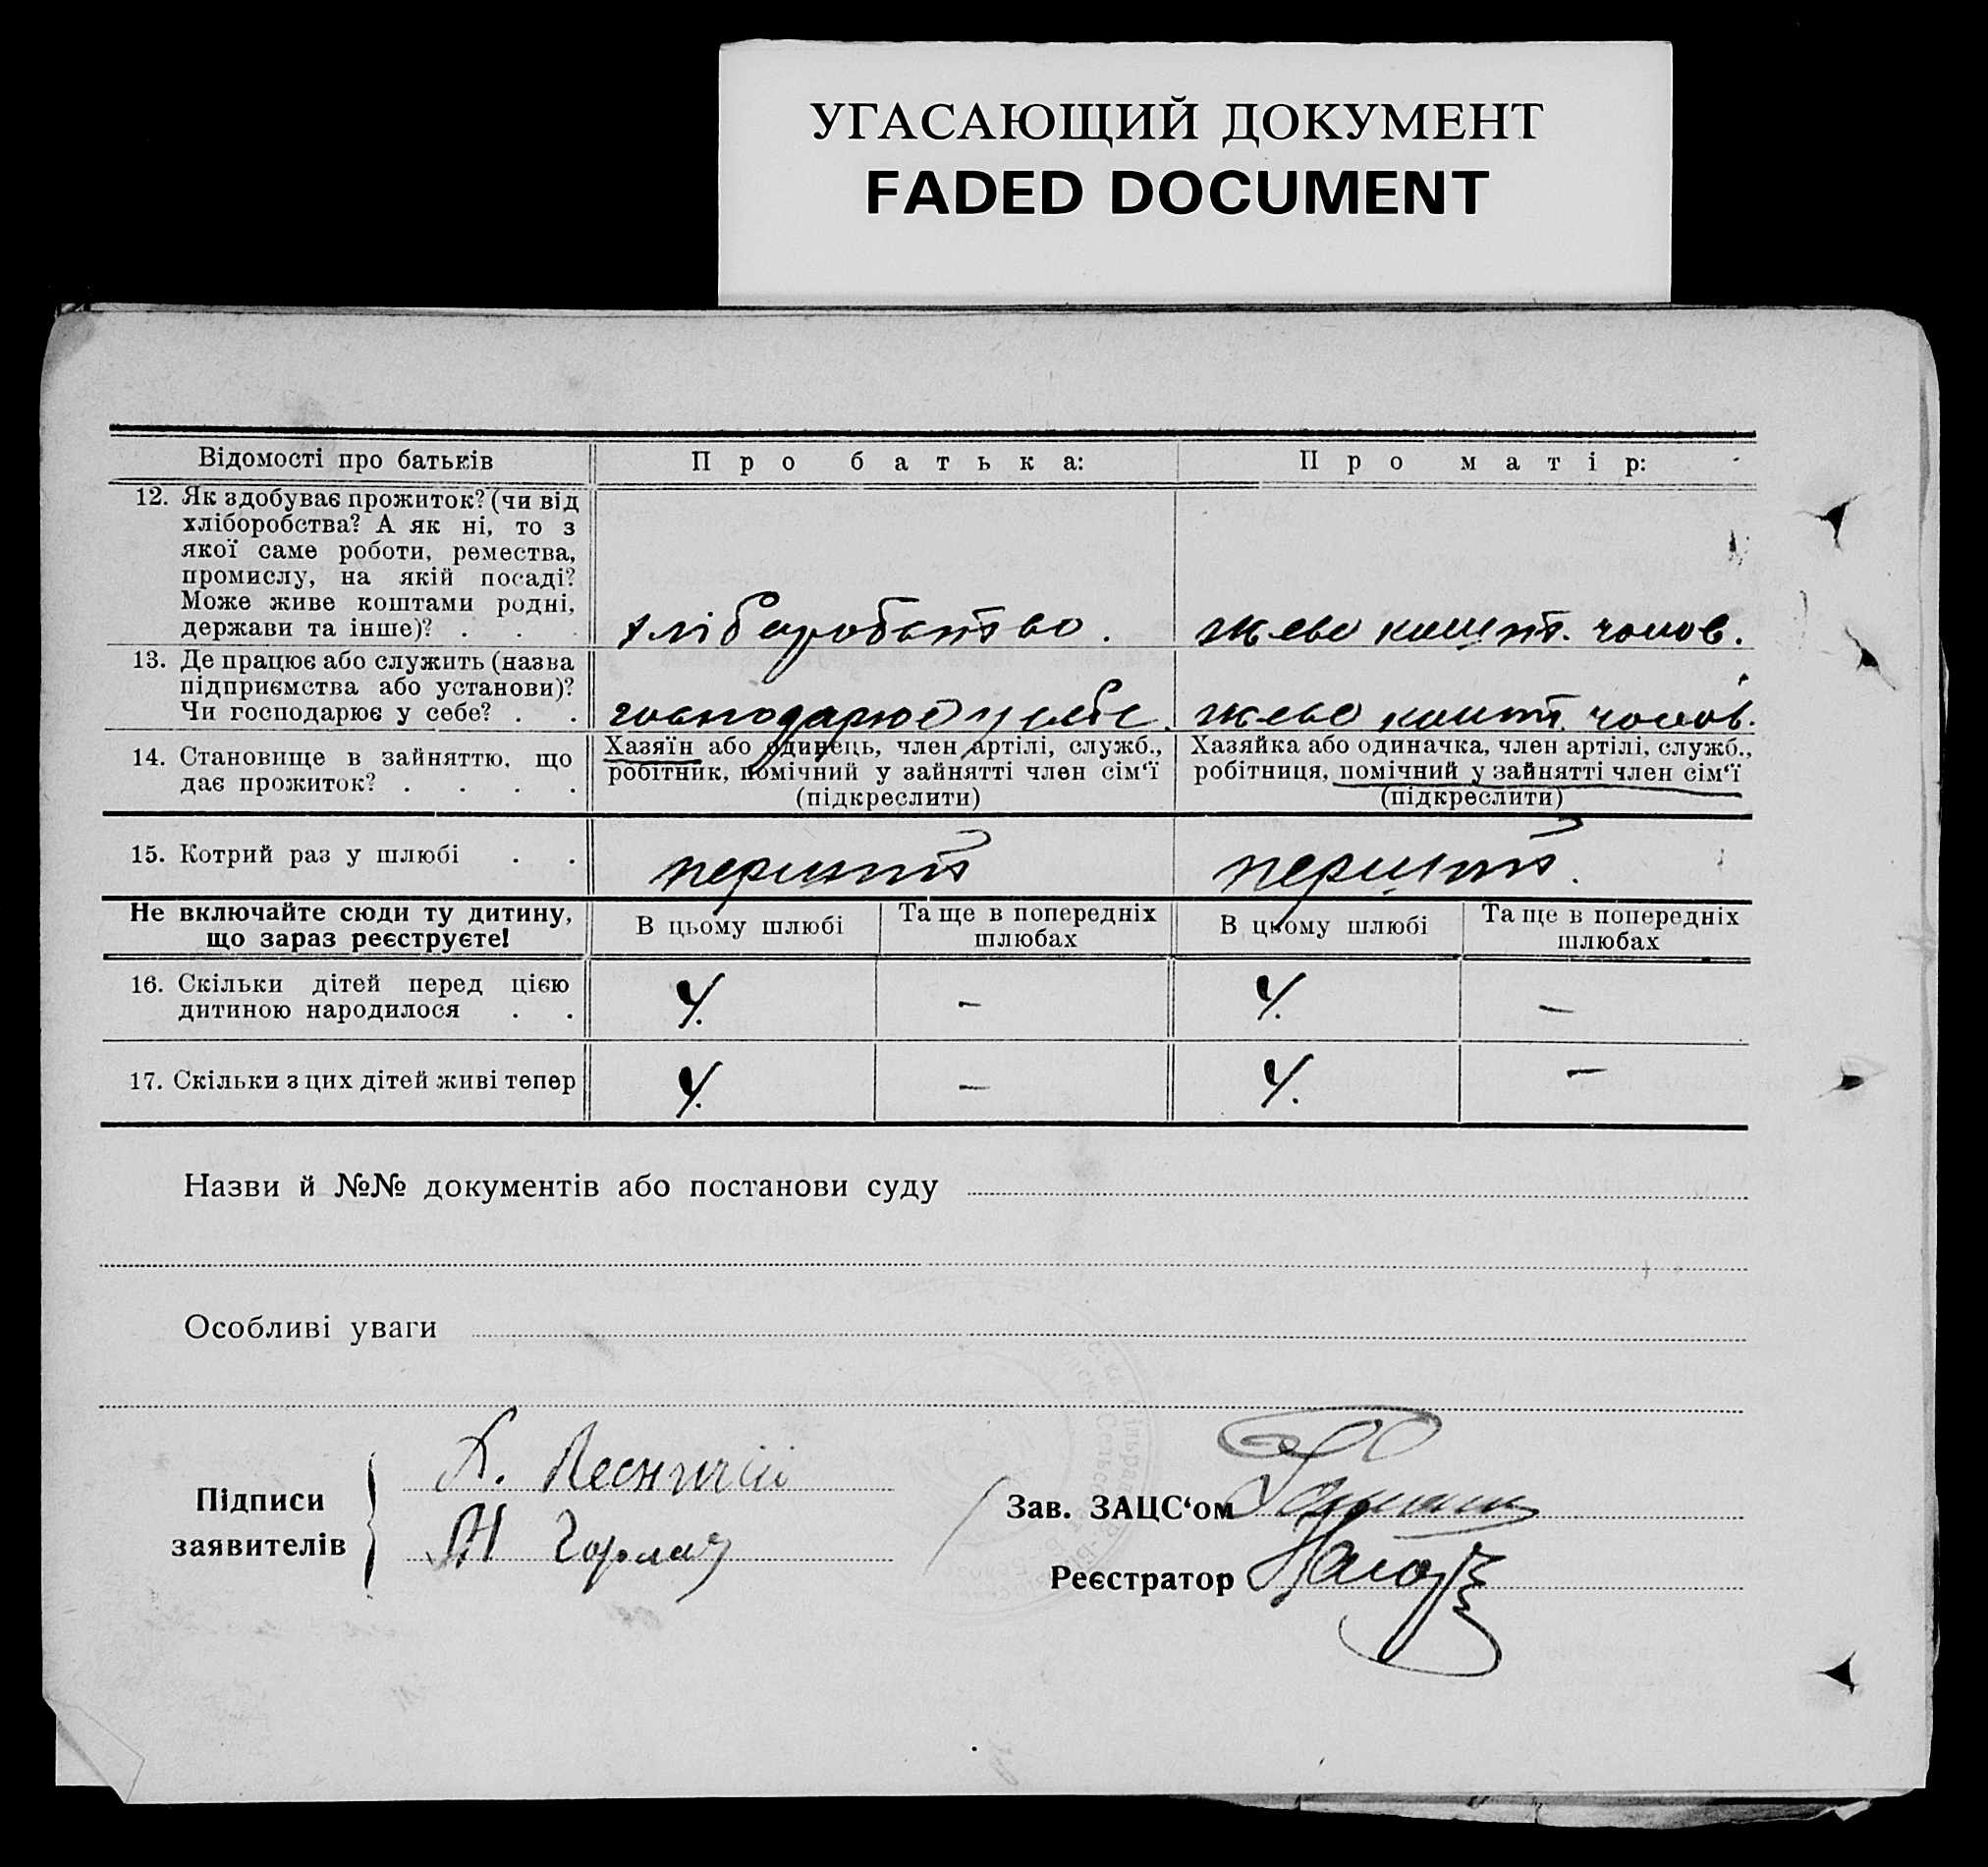 УГАСАЮЩИЙ ДОКУМЕНТ
FADED DOCUMENT
Відомості про батьків
Про батька:
Про матір:
12. Як здобуває прожиток? (чи від
хліборобства? А як ні, то з
якої саме роботи, ремества,
промислу, на якій посаді?
Може живе коштами родні,
держави та інше)? . . .
хліборобство.
живе кошт. чолов.
13. Де працює або служить (назва
підприємства або установи)?
Чи господарює у себе? . .
господарює у себе.
живе кошт. чолов.
14. Становище в зайняттю, що
дає прожиток? . . . .
Хазяїн або одинець, член артілі, служб.,
робітник, помічний у зайнятті член сім‘ї
(підкреслити)
Хазяйка або одиначка, член артілі, служб.,
робітниця, помічний у зайнятті член сім‘ї
(підкреслити)
15. Котрий раз у шлюбі . .
перший
перший.
Не включайте сюди ту дитину,
що зараз реєструєте!
В цьому шлюбі
Та ще в попередніх
шлюбах
В цьому шлюбі
Та ще в попередніх
шлюбах
16. Скільки дітей перед цією
дитиною народилося . .
4. – 4. –
17. Скільки з цих дітей живі тепер
4. – 4. –
Назви й №№ документів або постанови суду
Особливі уваги
Підписи
заявителів
Зав. ЗАЦС‘ом
Реєстратор